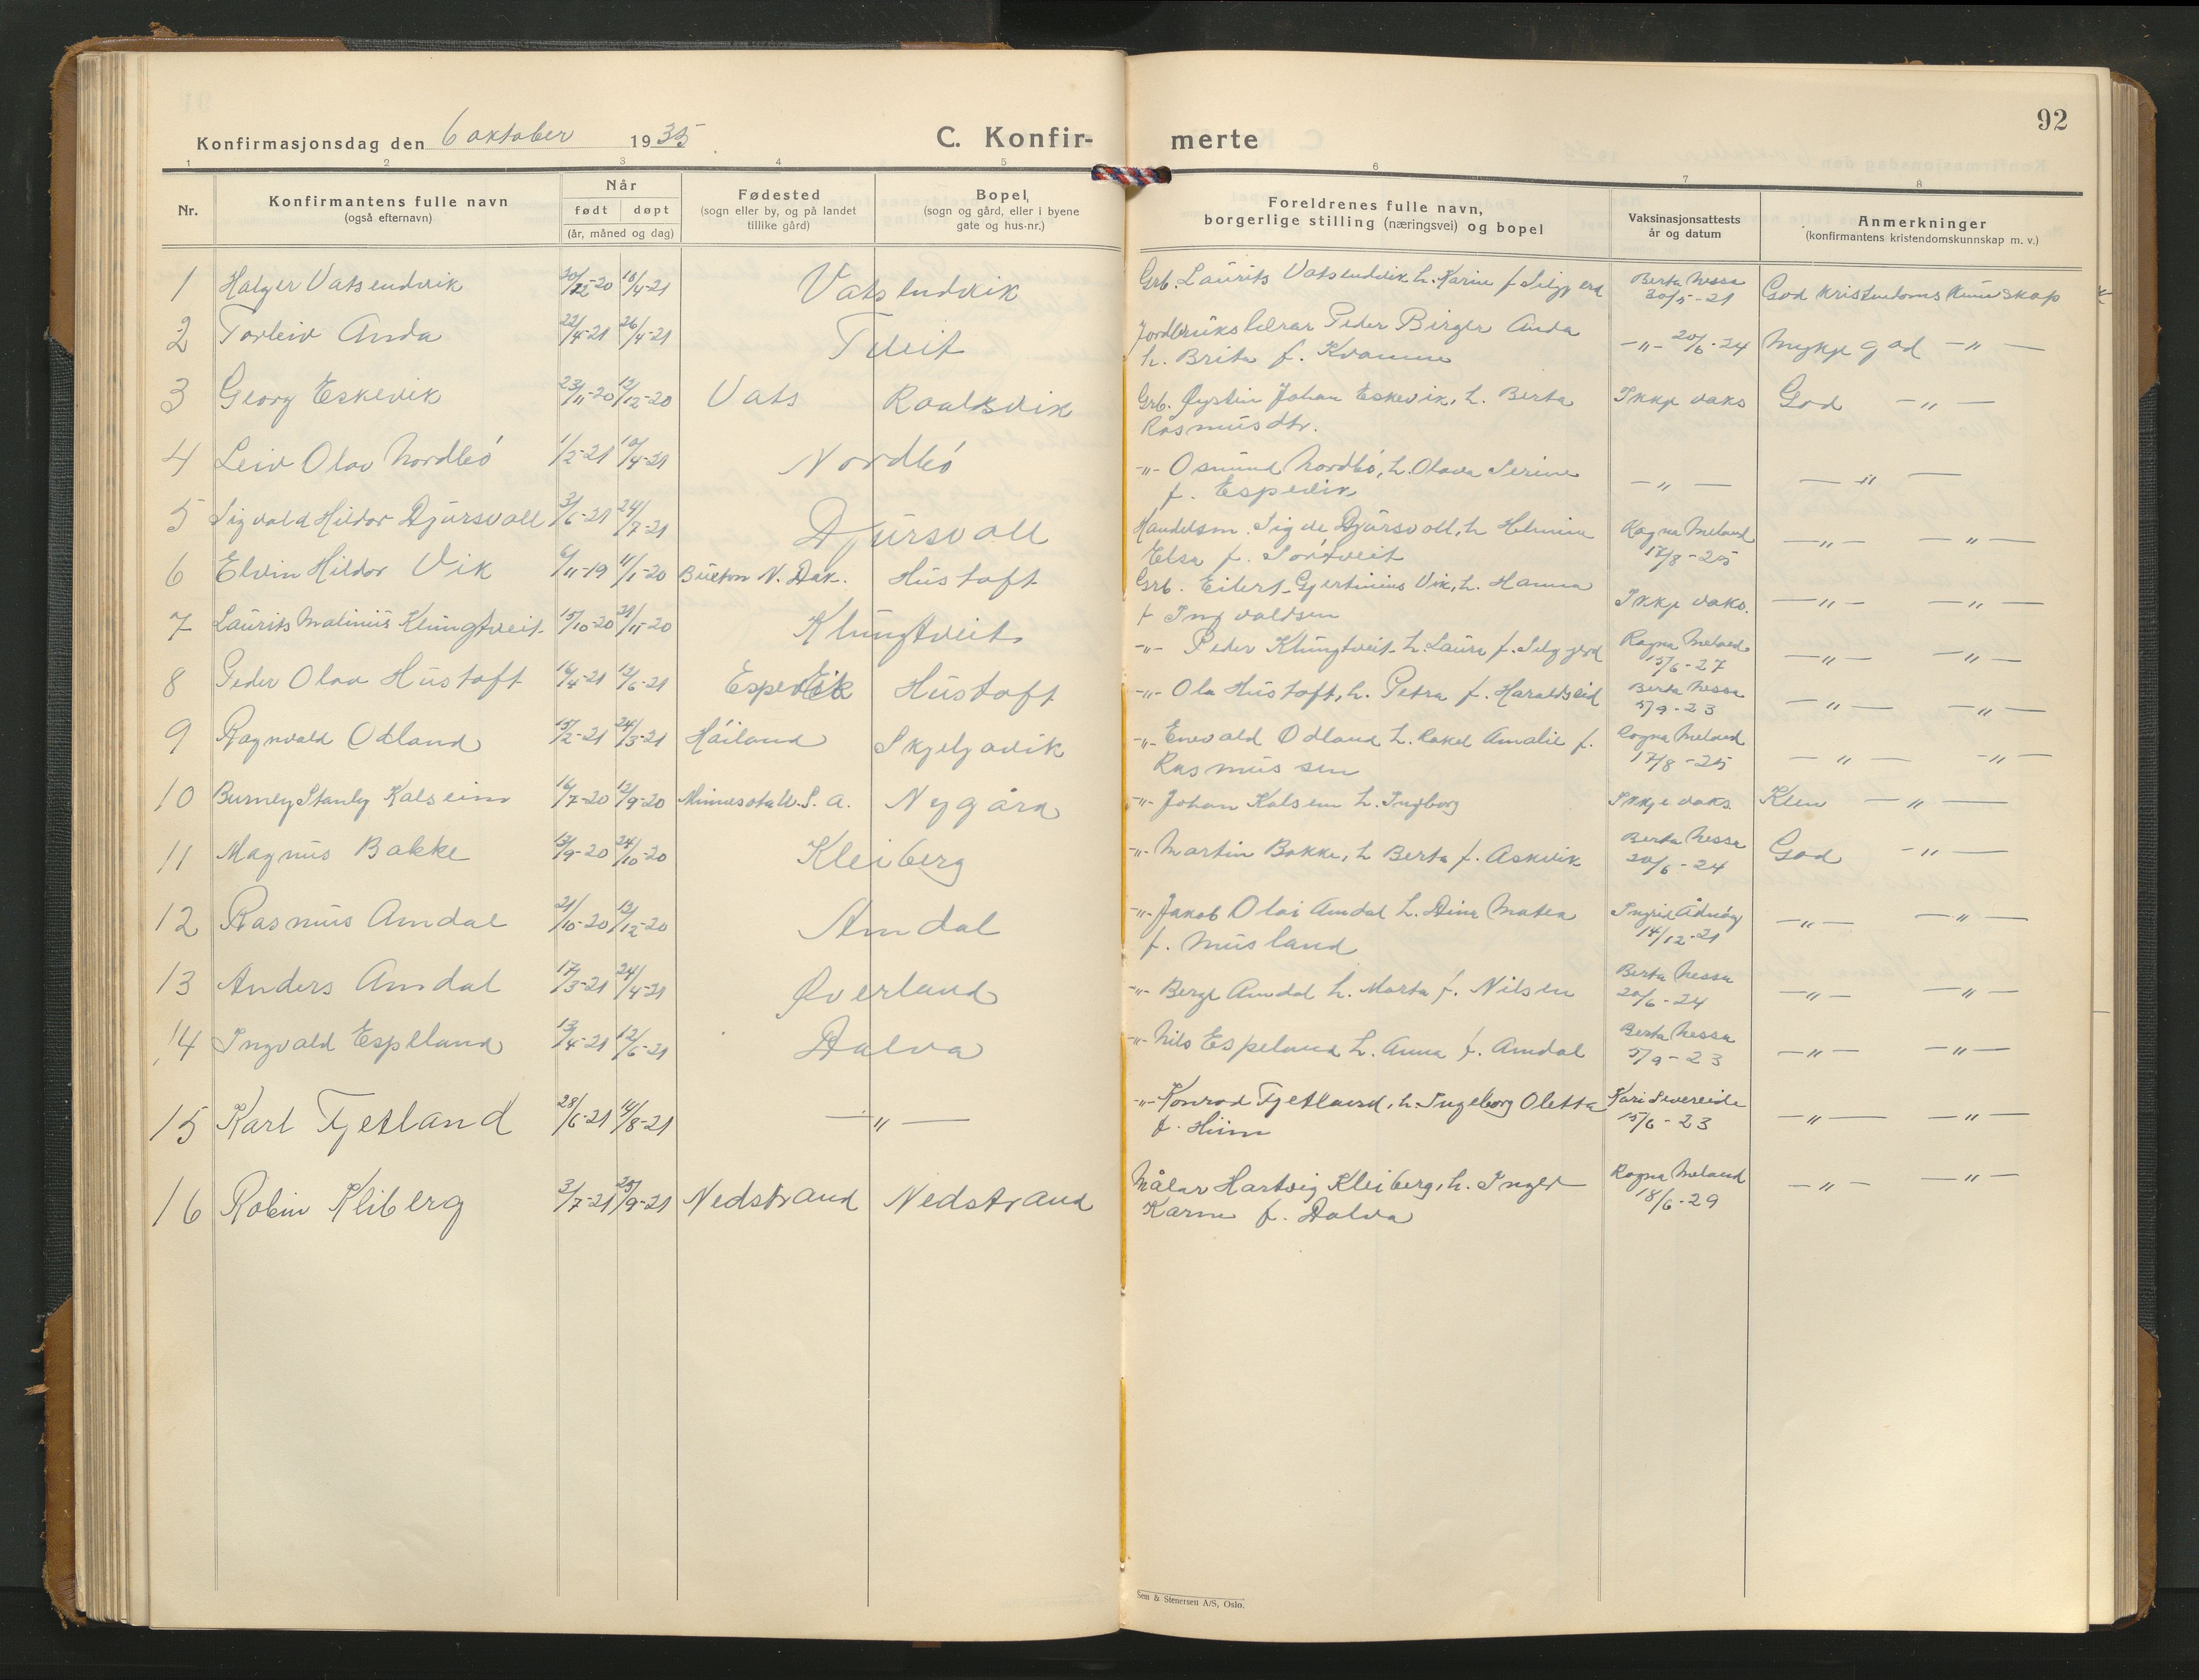 92
Konfirmasjonsdag den 6 oktober 1935
C. Konfir-
merte
1 2 3 4 5 6 7 8
Nr.
Konfirmantens fulle navn
(også efternavn)
Når
født døpt
(år, måned og dag)
Fødested
(sogn eller by, og på landet
tillike gård)
Bopel,
(sogn og gård, eller i byene
gate og hus-nr.)
Foreldrenes fulle navn,
borgerlige stilling (næringsvei) og bopel
Vaksinasjonsattests
år og datum
Anmerkninger
(konfirmantens kristendomskunnskap m. v.)
1 Halger Vatsendvik 30/12-20 18/4-21 Vatsendvik Grb. Laurits Vatsendvik h. Karine f Selgjerd Berta Nessa
30/5-21 God kristendomskunnskap
2 Torleiv Anda 22/4-21 26/4-21 Tveit Jordbrukslærar Peder Birger Anda
h. Brita f. Kvamme -"- 20/6-24 Mykje god -"-
3 Georg Eskevik 23/11-20 12/12-20 Vats Raalksvik Grb. Øystein Johan Eskevik, h. Berta
Rasmusdtr. Ikkje vaks God -"-
4 Leiv Olav Nordbö 1/2-21 10/4-21 Nordbö -"- Osmund Nordbö, h. Olava Serine
f. Espevik -"- -"-
5 Sigvald Hildor Djursvoll 3/6-21 24/7-21 Djursvoll Handelsm. Sigve Djursvoll, h Helmine
Elsa f. Sörtveit Ragna Meland
17/8-25 -"- -"-
6 Elvin Hildor Vik 6/11-19 11/1-20 Buxton N. Dak. Hustoft Grb. Eilert Gjertinius Vik, h. Hanna
f Ingvaldsen Ikkje vaks. -"- -"-
7 Laurits Malinius Klungtveit 15/10-20 21/11-20 Klungtveit -"- Peder Klungtveit h. Laura f. Selgjerd Ragna Meland
15/6-27 -"- -"-
8 Peder Olav Hustoft 16/4-21 12/6-21 Espevik Hustoft -"- Ola Hustoft, h. Petra f. Haraldseid Berta Nessa
5/9-23 -"- -"-
9 Ragnvald Odland 15/2-21 24/3-21 Håland Skjeljavik -"- Enevald Odland h. Rakel Amalie f.
Rasmussen Ragna Meland
17/8-25 -"- -"-
10 Burney Stanly Kalseim 16/7-20 12/9-20 Minnesota U. S. A. Nygård -"- Johan Kalseim h. Ingborg Ikkje vaks. Klen -"-
11 Magnus Bakke 13/9-20 24/10-20 Kleiberg -"- Martin Bakke, h Berta f. Askvik Berta Nessa
20/6-24 God -"-
12 Rasmus Amdal 21/10-20 12/12-20 Amdal -"- Jakob Olai Amdal h. Dina Matea
f. Musland Ingrid Ådnöy
14/12-21 -"- -"-
13 Anders Amdal 17/3-21 24/4-21 Øverland -"- Berge Amdal h. Marta f. Nilsen Berta Nessa
20/6-24 -"- -"-
14 Ingvald Espeland 13/4-21 12/6-21 Dalva -"- Nils Espeland h. Anna f. Amdal Berta Nessa
5/9-23 -"- -"-
15 Karl Fjetland 28/6-21 14/8-21 -"- -"- Konrad Fjetland, h. Ingeborg Oletta
f. Hiim Kari Svereide
15/6-23 -"- -"-
16 Robin Kleiberg 3/7-21 25/9-21 Nedstrand Nedstrand Målar Hartvig Kleiberg, h. Inger
Karine f. Dalva Ragna Meland
18/6-29 -"- -"-
Sem & Stenersen A/S, Oslo.